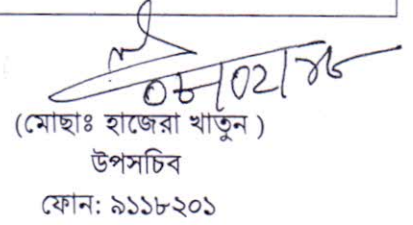 ০৮/০২/১৮
(মোছাঃ হাজেরা খাতুন )
উপসচিব
ফোন: ৯১১৮২০১